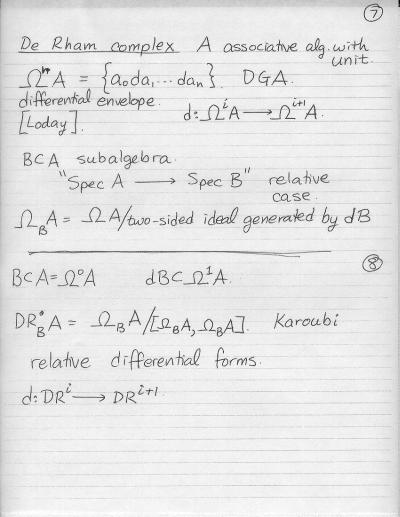 ⑦
De Rham complex A associative alg. with unit.
Ωⁿ A = {a₀da₁...daₙ}. DGA.
differential envelope. d: Ωⁱ A → Ωⁱ⁺¹ A.
[Loday].
B ⊂ A subalgebra.
"Spec A → Spec B" relative case.
Ω_B A = Ω A/two-sided ideal generated by dB
⑧
B ⊂ A = Ω⁰ A dB ⊂ Ω¹ A.
DR•_B A = Ω_B A/[Ω_B A, Ω_B A]. Karoubi
relative differential forms.
d: DRⁱ → DRⁱ⁺¹